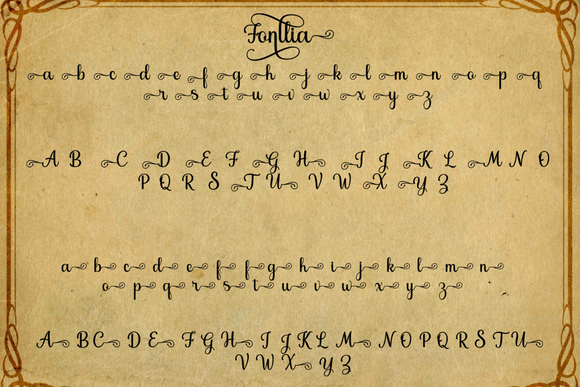 Fontlia
a b c d e f g h j k l m n o p q
r s t u v w x y z
A B C D E F G H I J K L M N O
P Q R S T U V W X Y Z
a b c d e f f g h i j k l m n
o p q r s t u v w x y z
A B C D E F G H I J K L M N O P Q R S T U
V W X Y Z